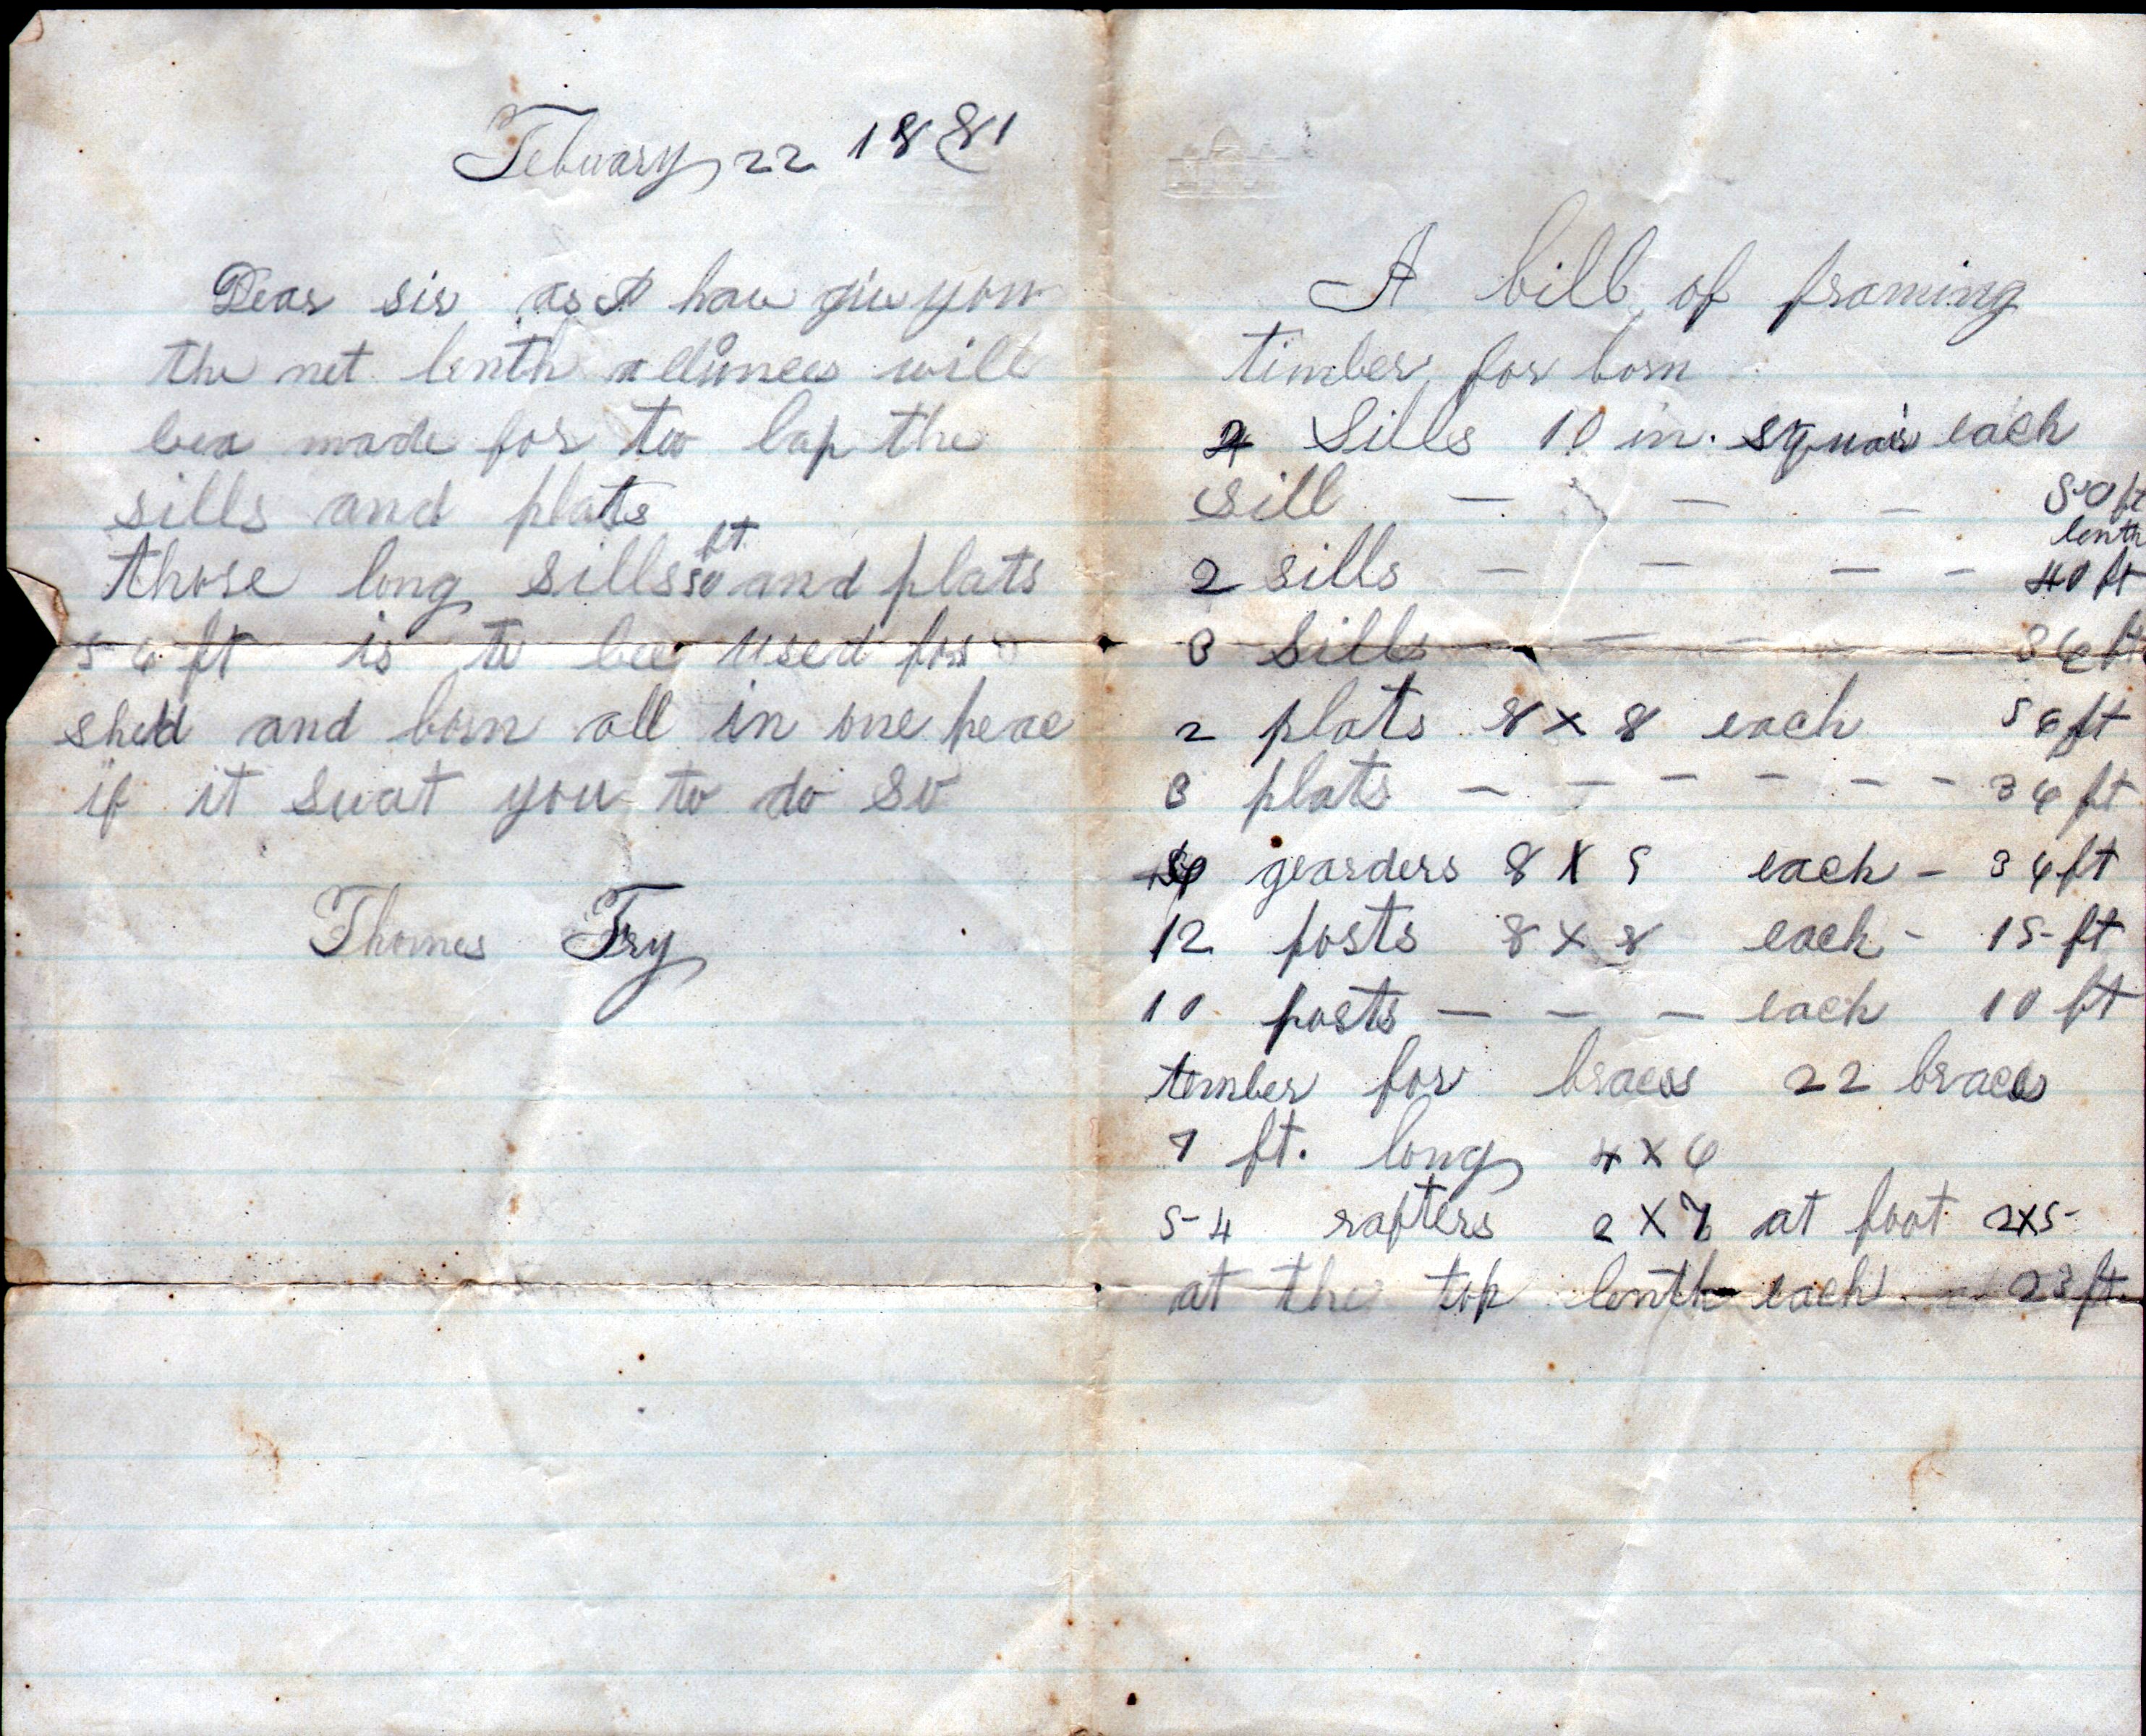 Febuary 22 1881
Dear sir as I hav giv you
the net lenth will
bea made for too lap the
sills and plats
ft
those long sills 50 and plats
56 ft is to bee used for
shed and born all in one peac
if it suat you to do so
Thomas Fry
A bill of framing
timber for born
Sills 10 in. squair each
sill — — — 50 ft
lenth
2 sills — — — - 40 ft
3 sills — — — 36 ft
2 plats 8 x 8 each 56 ft
3 plats — — — — — - 36 ft
gearders 8 X 5 each - 36 ft
12 posts 8 X 8 each - 15 ft
10 posts — — — each 10 ft
timber for braces 22 braces
7 ft. long 4 X 6
54 rafters 2 X 7 at foot 2x5
at the top lenth each 23 ft.